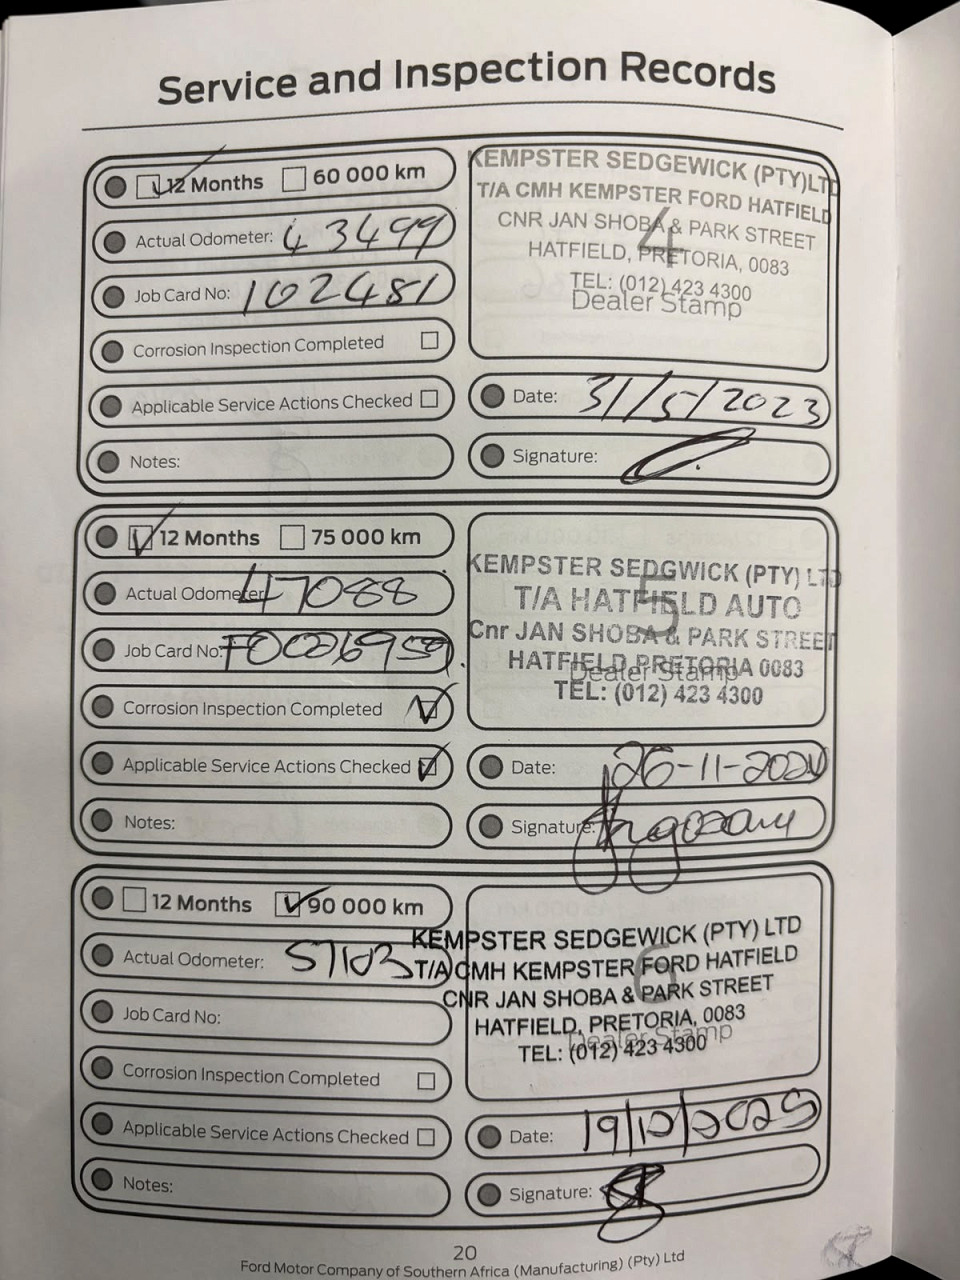 Service and Inspection Records
12 Months 60 000 km
Actual Odometer: 43499
Job Card No: 102481
Corrosion Inspection Completed
Applicable Service Actions Checked
Notes:
KEMPSTER SEDGEWICK (PTY)LTD
T/A CMH KEMPSTER FORD HATFIELD
CNR JAN SHOBA & PARK STREET
4
HATFIELD, PRETORIA, 0083
TEL: (012) 423 4300
Dealer Stamp
Date: 31/5/2023
Signature:
12 Months 75 000 km
Actual Odometer: 47088
Job Card No:
Corrosion Inspection Completed
Applicable Service Actions Checked
Notes:
KEMPSTER SEDGWICK (PTY) LTD
5
T/A HATFIELD AUTO
Cnr JAN SHOBA & PARK STREET
HATFIELD PRETORIA 0083
Dealer Stamp
TEL: (012) 423 4300
Date: 26-11-2024
Signature:
12 Months 90 000 km
Actual Odometer: 57103
Job Card No:
Corrosion Inspection Completed
Applicable Service Actions Checked
Notes:
KEMPSTER SEDGEWICK (PTY) LTD
T/A CMH KEMPSTER FORD HATFIELD
6
CNR JAN SHOBA & PARK STREET
HATFIELD, PRETORIA, 0083
Dealer Stamp
TEL: (012) 423 4300
Date: 19/12/2025
Signature:
20
Ford Motor Company of Southern Africa (Manufacturing) (Pty) Ltd